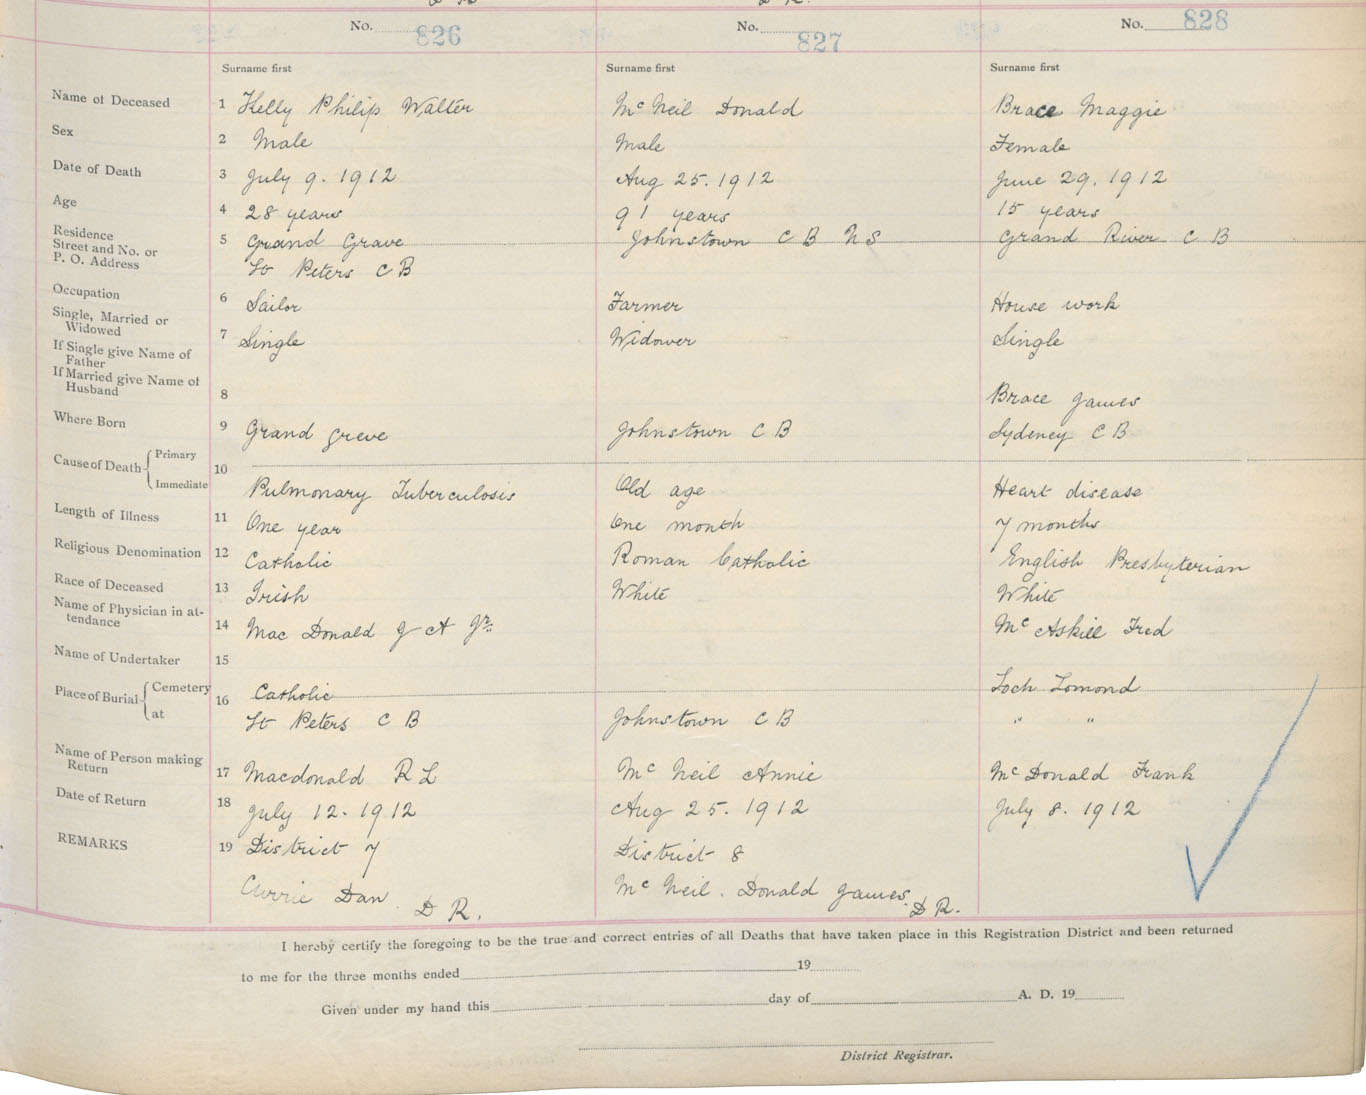 No. 826 No. 827 No. 828
Surname first Surname first Surname first
Name of Deceased 1 Kelly Philip Walter McNeil Donald Brace Maggie
Sex 2 Male Male Female
Date of Death 3 July 9. 1912 Aug 25. 1912 June 29. 1912
Age 4 28 years 91 years 15 years
Residence
Street and No. or 5 Grand Grave Johnstown C B N S Grand River C B
P. O. Address St Peters C B
Occupation 6 Sailor Farmer House work
Single, Married or
Widowed 7 Single Widower Single
If Single give Name of
Father
If Married give Name of
Husband 8 Brace James
Where Born 9 Grand greve Johnstown C B Sydeney C B
Cause of Death Primary
10
Immediate Pulmonary Tuberculosis Old age Heart disease
Length of Illness 11 One year One month 7 months
Religious Denomination 12 Catholic Roman Catholic English Presbyterian
Race of Deceased 13 Irish White White
Name of Physician in at-
tendance 14 Mac Donald J A Jr. McAskill Fred
Name of Undertaker 15
Place of Burial Cemetery 16 Catholic Loch Lomond
at St Peters C B Johnstown C B " "
Name of Person making
Return 17 Macdonald R L McNeil Annie McDonald Frank
Date of Return 18 July 12. 1912 Aug 25. 1912 July 8. 1912
REMARKS 19 District 7 District 8
Currie Dan D R. McNeil. Donald James. D R.
I hereby certify the foregoing to be the true and correct entries of all Deaths that have taken place in this Registration District and been returned
to me for the three months ended 19
Given under my hand this day of A. D. 19
District Registrar.